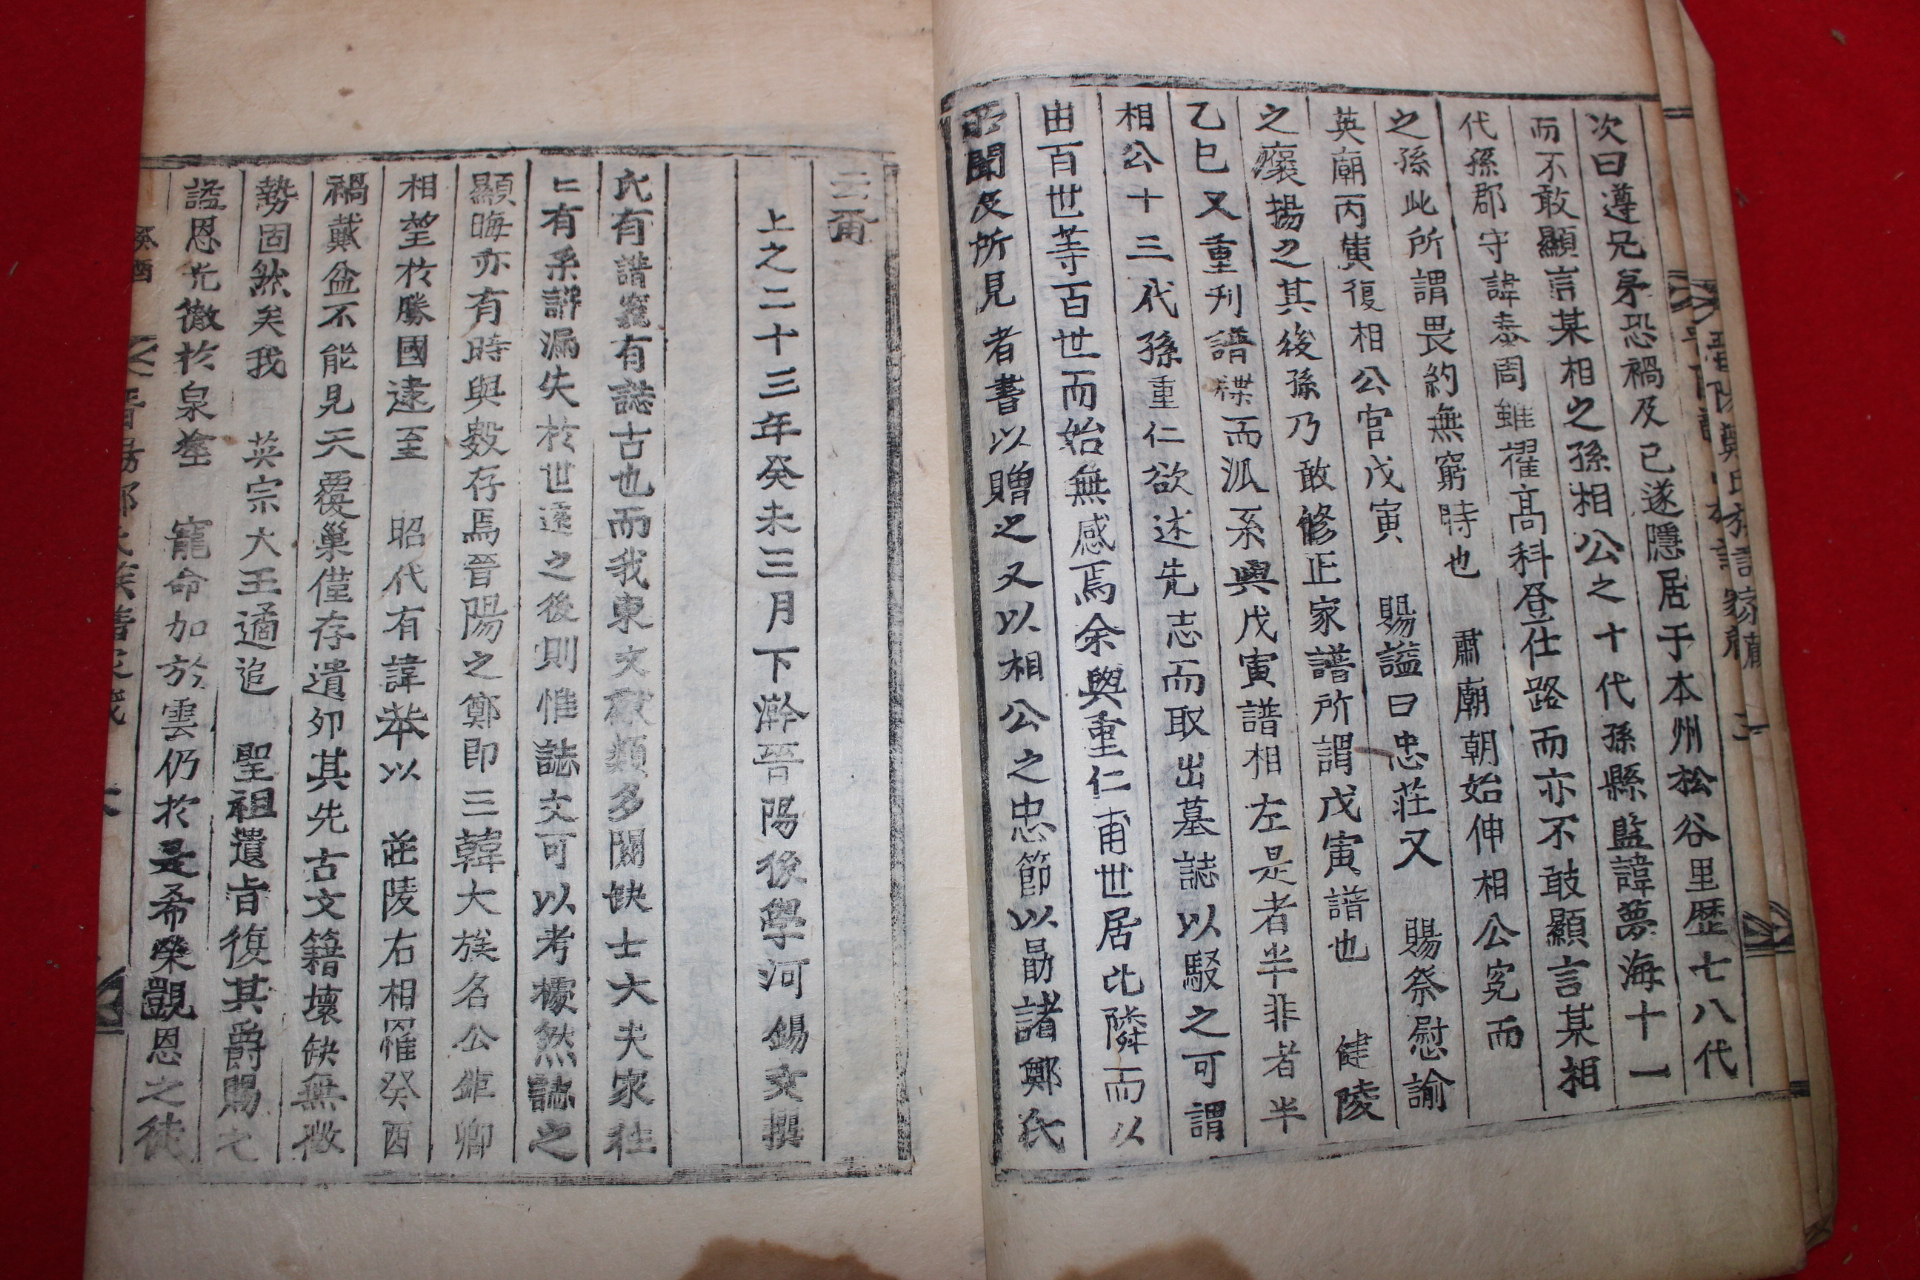 次曰遵兄弟恐禍及己遂隱居于本州松谷里歷七八代
而不敢顯言某相之孫相公之十代孫縣監諱夢海十一
代孫郡守諱泰周雖擢高科登仕路而亦不敢顯言某相
之孫此所謂畏約無窮時也 肅廟朝始伸相公寃而
英廟丙寅復相公官戊寅 賜謚曰忠莊又 賜祭慰諭
之褒揚之其後孫乃敢修正家譜所謂戊寅譜也 健陵
乙巳又重刋譜牒而派系與戊寅譜相左是者半非者半
相公十三代孫重仁欲述先志而取出墓誌以駁之可謂
由百世等百世而始無感焉余與重仁甫世居比隣而以
所聞及所見者書以贈之又以相公之忠節以勗諸鄭氏
云爾
上之二十三年癸未三月下澣晉陽後學河錫文撰
氏有譜竁有誌古也而我東文獻類多闕缺士大夫家往
亡有系辭漏失於世遠之後則惟誌文可以考據然誌之
顯晦亦有時與數存焉晉陽之鄭即三韓大族名公鉅卿
相望於勝國逮至 昭代有諱苯以 莊陵右相罹癸酉
禍戴盆不能見天覆巢僅存遺卵其先古文籍壞缺無徵
勢固然矣我 英宗大王遹追 聖祖遺旨復其爵賜之
謚恩光徹於泉塗 寵命加於雲仍於是希榮覬恩之徒
晉陽鄭氏族譜家藏 二